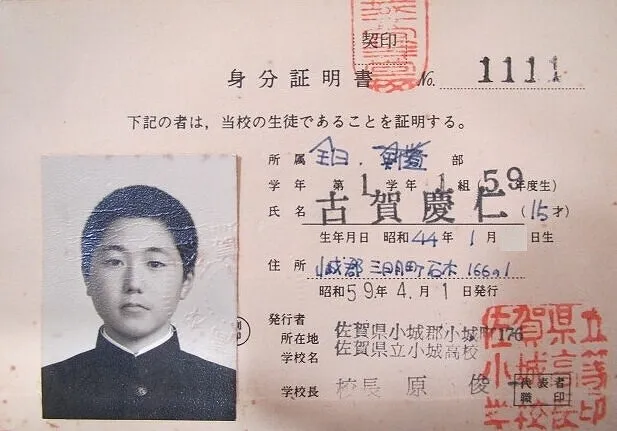 契印
身分証明書 No. 1111
下記の者は，当校の生徒であることを証明する。
所属 全日・普通 部
学年 第1学年1組(59年度生)
氏名 古賀慶仁 (15才)
生年月日 昭和44年1月 日生
住所 小城郡三日月町 166の1
昭和59年4月1日発行
発行者
所在地 佐賀県小城郡小城町176
学校名 佐賀県立小城高校
学校長 校長 原 俊
代表者
職印
佐賀県立
小城高等
学校長印